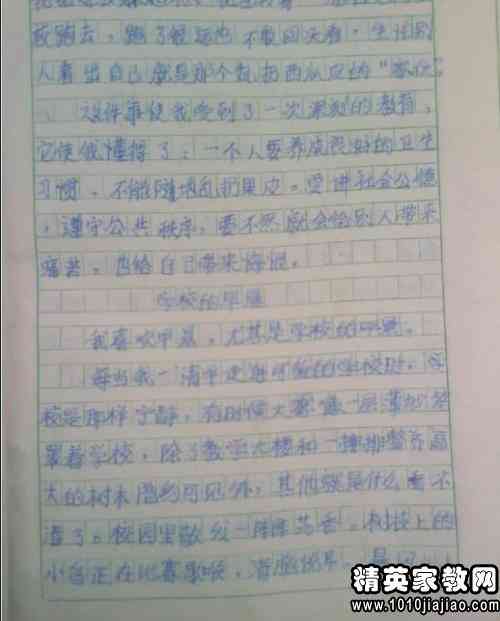 或跑去，跑了很远也不敢回头看，生怕别
人看出自己就是那个乱扔西瓜皮的“家伙”。
这件事使我受到了一次深刻的教育，
它使我懂得了：一个人要养成良好的卫生
习惯，不能随地乱扔果皮。要讲社会公德
，遵守公共秩序，要不然就会给别人带来
痛苦，也给自己带来悔恨。
学校的早晨
我喜欢早晨，尤其是学校的早晨。
每当我一清早走进可爱的学校时，学
校是那样宁静，有时候大雾像一层薄纱笼
罩着学校，除了教学大楼和一排排整齐高
大的树木隐约可见外，其他就是什么看不
清了。校园里散发一阵阵芳香。树枝上的
小鸟正在比赛歌喉，清脆悦耳。
精英家教网
www.1010jiajiao.com